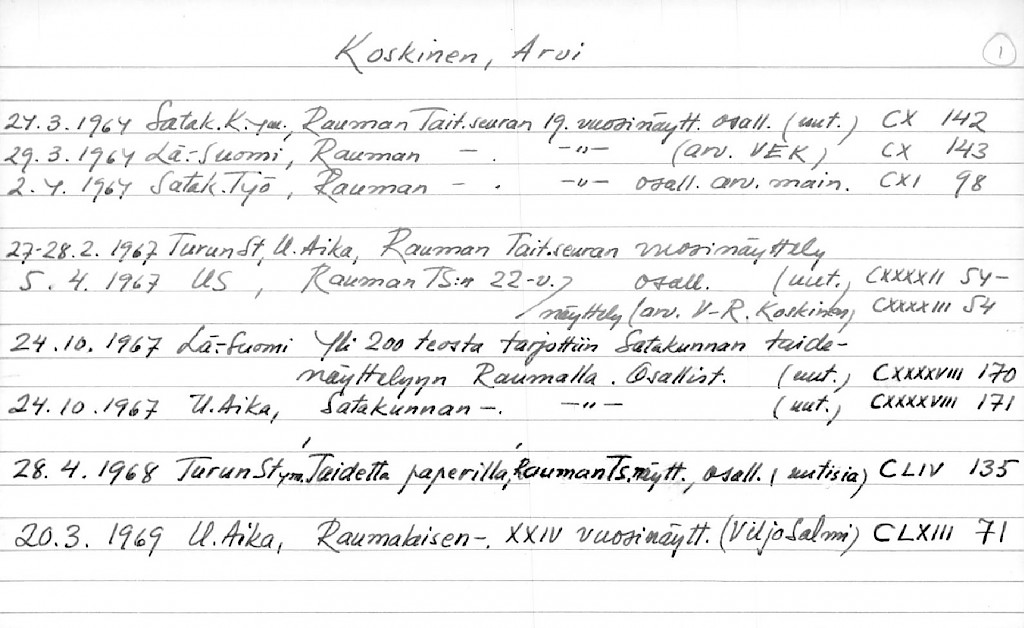 Koskinen, Arvi 1
24.3.1964 Satak.K. ym., Rauman Tait.seuran 19. vuosinäytt. osall. (uut.) CX 142
29.3.1964 Lä-Suomi, Rauman - . -"- (arv. VEK) CX 143
2.4.1964 Satak.Työ, Rauman - . -"- osall. arv. main. CXI 98
27-28.2.1967 Turun St, U.Aika, Rauman Tait.seuran vuosinäyttely
5.4.1967 US, Rauman TS:n 22-v. osall. (uut.) CXXXXII 54-
näyttely (arv. V-R. Koskinen) CXXXXIII 54
24.10.1967 Lä-Suomi Yli 200 teosta tarjottiin Satakunnan taide-
näyttelyyn Raumalla. Osallist. (uut.) CXXXXVIII 170
24.10.1967 U.Aika, Satakunnan -. -"- (uut.) CXXXXVIII 171
28.4.1968 Turun St ym. 'Taidetta paperilla,' Rauman Ts. näytt., osall. (uutisia) CLIV 135
20.3.1969 U.Aika, Raumalaisen -. XXIV vuosinäytt. (Viljo Salmi) CLXIII 71